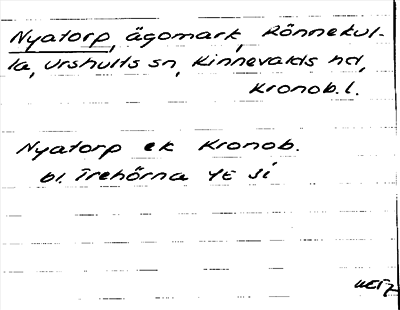 Nyatorp, ägomark, Rönnekul-
la, Urshults sn, Kinnevalds hd,
Kronob. l.
Nyatorp ek Kronob.
bl. Trehörna 4E Si